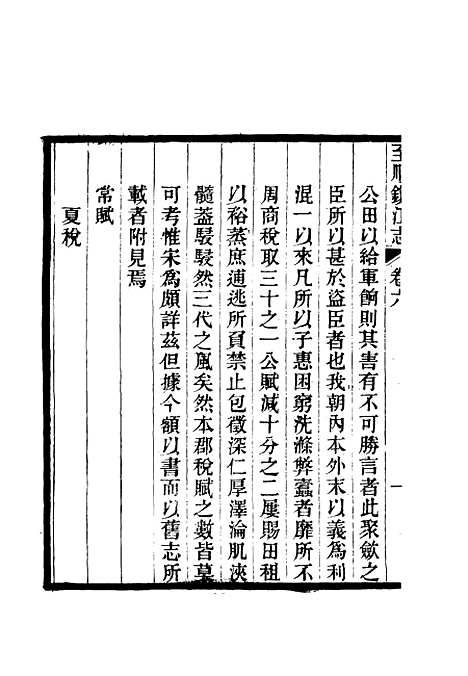 至順鎮江志 卷六 一
公田以給軍餉則其害有不可勝言者此聚斂之
臣所以甚於盜臣者也我朝內本外末以義爲利
混一以來凡所以子惠困窮洗滌弊蠹者靡所不
周商稅取三十之一公賦減十分之二屢賜田租
以裕蒸庶逋逃所負禁止包徵深仁厚澤淪肌浹
髓葢駸駸然三代之風矣然本郡稅賦之數皆莫
可考惟宋爲頗詳茲但據今額以書而以舊志所
載者附見焉
常賦
夏稅